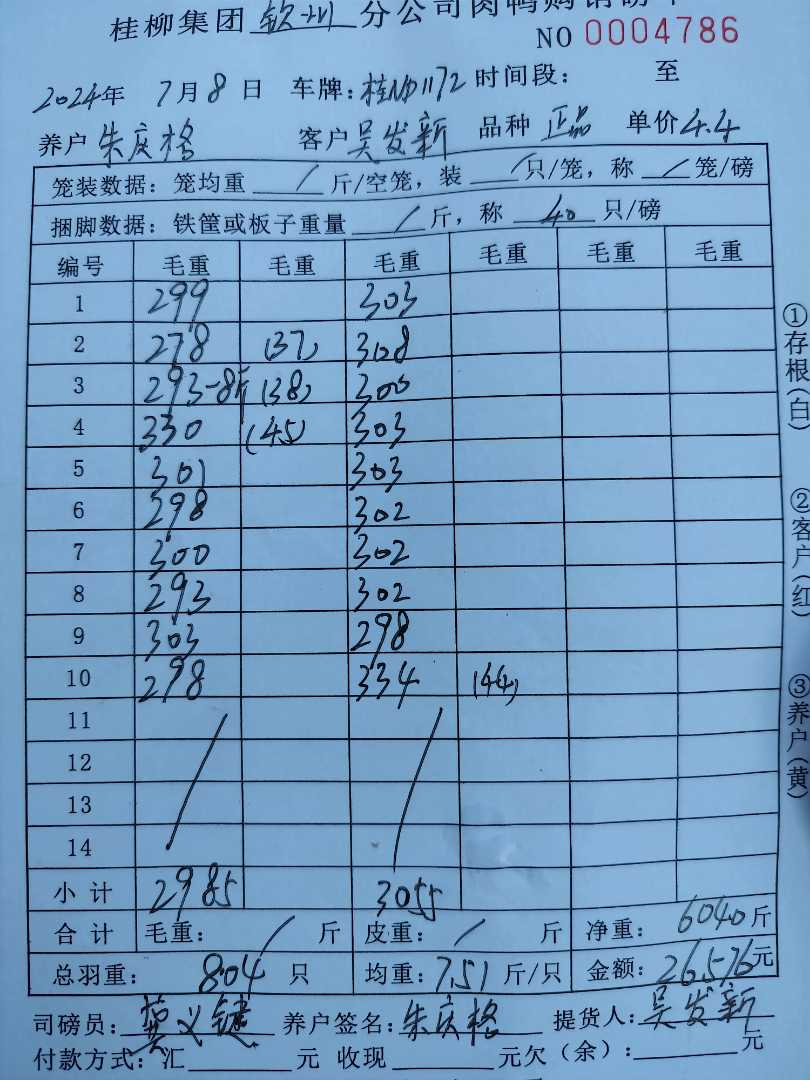 桂柳集团 钦州 分公司肉鸭购销磅单
NO 0004786
2024年 7月8日 车牌:桂ND1172 时间段: 至
养户 朱庆格 客户 吴发新 品种 正品 单价 4.4
笼装数据:笼均重 / 斤/空笼,装 / 只/笼,称 / 笼/磅
捆脚数据:铁筐或板子重量 / 斤,称 40 只/磅
编号 毛重 毛重 毛重 毛重 毛重 毛重
1 299 303
2 278 (37) 308
3 293-8斤 (38) 300
4 330 (45) 303
5 301 303
6 298 302
7 300 302
8 293 302
9 303 298
10 298 334 (44)
11
12
13
14
小计 2985 3055
合计 毛重: / 斤 皮重: / 斤 净重: 6040斤
总羽重: 804 只 均重:7.51 斤/只 金额:26576元
司磅员: 义键 养户签名:朱庆格 提货人:吴发新
付款方式:汇 元 收现 元欠(余): 元
①存根(白) ②客户(红) ③养户(黄)